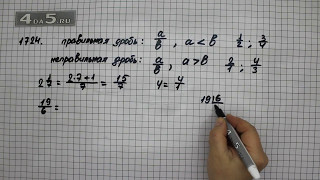 4DA5.RU
1724. правильная дробь: a/b , a < b 1/2 ; 3/7
неправильная дробь: a/b , a > b 2/1 ; 4/3
2 1/7 = (2·7+1)/7 = 15/7 4 = 4/1
19/6 = 19|6